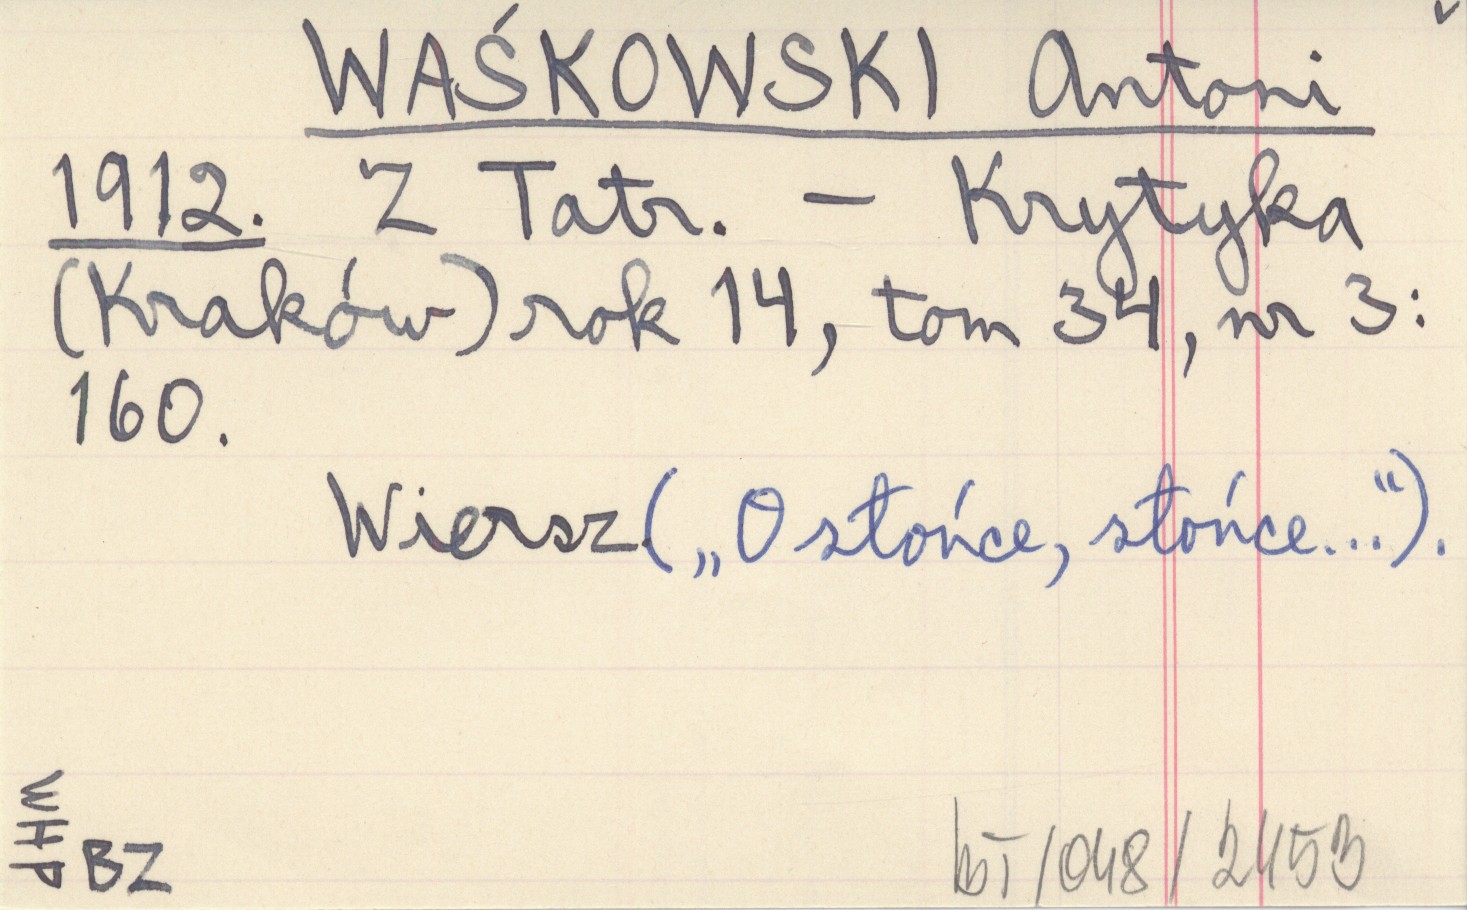 WAŚKOWSKI Antoni
1912. Z Tatr. – Krytyka
(Kraków) rok 14, tom 34, nr 3:
160.
Wiersz („O słońce, słońce...“).
WHP
BZ
/048/2453